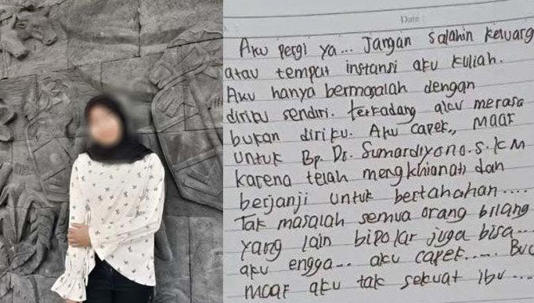 Date :
Aku pergi ya... Jangan salahin keluarga
atau tempat instansi aku kuliah.
Aku hanya bermasalah dengan
diriku sendiri. terkadang aku merasa
bukan diriku. Aku capek., maaf
untuk Bp. Dr. Sumardiyono. S.KM
karena telah mengkhianati dan
berjanji untuk bertahahan....
Tak masalah semua orang bilang
yang lain bipolar juga bisa...
aku engga... aku capek.....
maaf aku tak sekuat ibu....